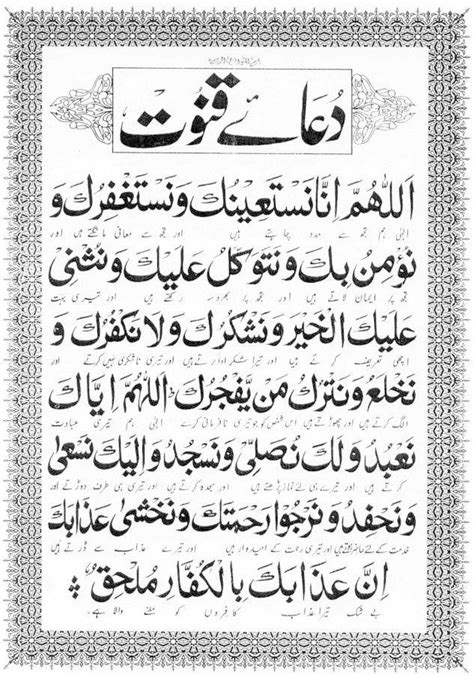 دُعَائے قنوت
اَللّٰهُمَّ اِنَّا نَسْتَعِيْنُكَ وَنَسْتَغْفِرُكَ وَ
الٰہی ہم تجھ سے مدد چاہتے ہیں اور تجھ سے معافی مانگتے ہیں اور
نُؤْمِنُ بِكَ وَنَتَوَكَّلُ عَلَيْكَ وَنُثْنِیْ
تجھ پر ایمان لاتے ہیں اور تجھ پر بھروسہ رکھتے ہیں اور تیری بہت
عَلَيْكَ الْخَيْرَ وَنَشْكُرُكَ وَلَا نَكْفُرُكَ وَ
اچھی تعریف کرتے ہیں اور تیرا شکر ادا کرتے ہیں اور تیری ناشکری نہیں کرتے اور
نَخْلَعُ وَنَتْرُكُ مَنْ يَّفْجُرُكَ اَللّٰهُمَّ اِيَّاكَ
الگ کرتے ہیں اور چھوڑتے ہیں اس شخص کو جو تیری نافرمانی کرے الٰہی ہم تیری عبادت
نَعْبُدُ وَلَكَ نُصَلِّیْ وَنَسْجُدُ وَاِلَيْكَ نَسْعٰی
کرتے ہیں اور تیرے ہی لئے نماز پڑھتے ہیں اور سجدہ کرتے ہیں اور تیری ہی طرف دوڑتے اور
وَنَحْفِدُ وَنَرْجُوْا رَحْمَتَكَ وَنَخْشٰی عَذَابَكَ
خدمت کے لئے حاضر ہوتے ہیں اور تیری رحمت کے امیدوار ہیں اور تیرے عذاب سے ڈرتے ہیں
اِنَّ عَذَابَكَ بِالْكُفَّارِ مُلْحِقٌ
بے شک تیرا عذاب کافروں کو ملنے والا ہے۔